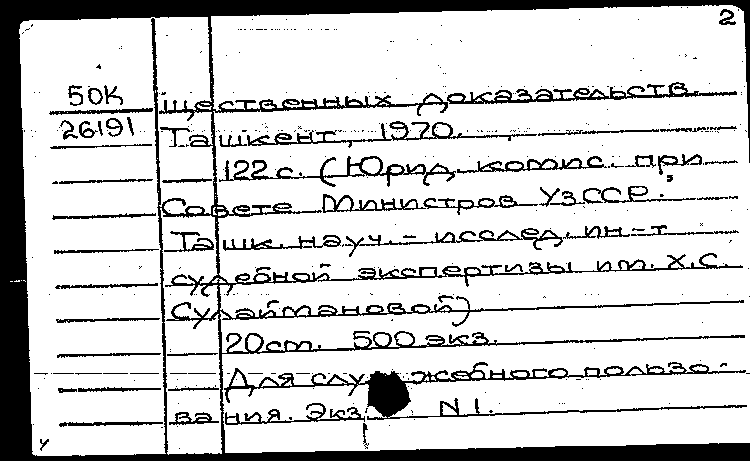 2
50К щественных доказательств.
26191 Ташкент, 1970.
122 с. (Юрид. комис. при
Совете Министров УзССР.
Ташк. науч.-исслед. ин-т
судебной экспертизы им. Х.С.
Сулаймановой)
20см. 500 экз.
Для служебного пользо-
вания. Экз. N 1.